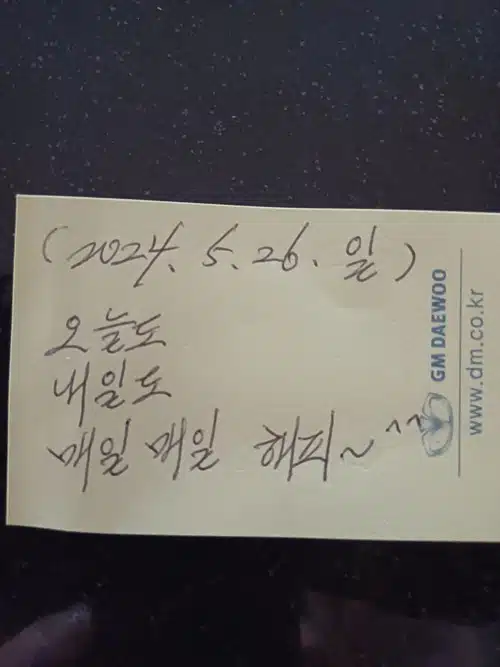 (2024. 5. 26. 일)
오늘도
내일도
매일 매일 해피~^^
GM DAEWOO
www.dm.co.kr